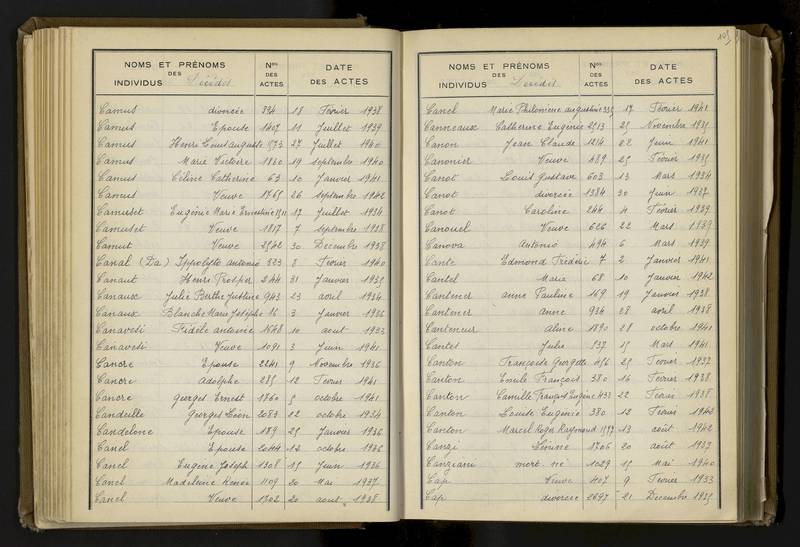 NOMS ET PRÉNOMS Nos DATE
DES DES
INDIVIDUS Décédés ACTES DES ACTES
Camus divorcée 324 18 Février 1938
Camus Epouse 1407 11 Juillet 1939
Camus Henri Louis auguste 1573 27 Juillet 1940
Camus Marie Victoire 1860 19 septembre 1940
Camus Céline Catherine 63 10 Janvier 1941
Camus Veuve 1765 26 septembre 1942
Camuset Eugénie Marie Ernestine 1511 17 Juillet 1934
Camuset Veuve 1817 7 septembre 1938
Camut Veuve 2542 30 Decembre 1938
Canal (Da) Ippolyto antonio 323 8 Février 1940
Canaut Henri Prosper 244 31 Janvier 1935
Canaux Julie Berthe Justine 943 23 avril 1934
Canaux Blanche Marie Josèphe 36 3 Janvier 1936
Canavesi Fidèle antoine 1648 10 aout 1933
Canavesi Veuve 1091 3 Juin 1941
Cancre Epouse 2241 9 Novembre 1936
Cancre Adolphe 285 12 Février 1941
Cancre Georges Ernest 1760 5 octobre 1941
Candeille Georges Léon 2083 12 octobre 1934
Candelone Epouse 189 25 Janvier 1936
Canel Epouse 2044 12 octobre 1936
Canel Eugène Joseph 1308 15 Juin 1936
Canel Madeleine Renée 1109 20 Mai 1937
Canel Veuve 1702 20 aout 1938
105
NOMS ET PRÉNOMS Nos DATE
DES DES
INDIVIDUS Décédés ACTES DES ACTES
Canel Marie Philomène augustine 335 17 Février 1941
Canneaux Catherine Eugénie 2513 25 Novembre 1935
Canon Jean Claude 1214 22 Juin 1941
Canonier Veuve 489 25 Février 1935
Canot Louis Gustave 603 13 Mars 1934
Canot divorcée 1384 30 Juin 1937
Canot Caroline 246 4 Février 1939
Canouel Veuve 626 22 Mars 1939
Canova Antonio 494 6 Mars 1939
Cante Edmond Frédéric 7 2 Janvier 1941
Cantel Marie 68 10 Janvier 1942
Cantener anne Pauline 169 19 Janvier 1938
Cantener anne 934 28 avril 1938
Canteneur Aline 1890 28 octobre 1941
Cantet Julie 537 15 Mars 1941
Canton Françoise Georgette 456 25 Février 1937
Canton Emile François 380 16 Février 1938
Canton Camille François Eugène 438 22 Février 1938
Canton Louise Eugénie 380 12 Février 1942
Canton Marcel Roger Raymond 1577 13 août 1942
Canzi 1706 20 août 1937
Canziani mort né 1029 15 Mai 1940
Cap Veuve 407 9 Février 1933
Cap divorcée 2697 21 Décembre 1935